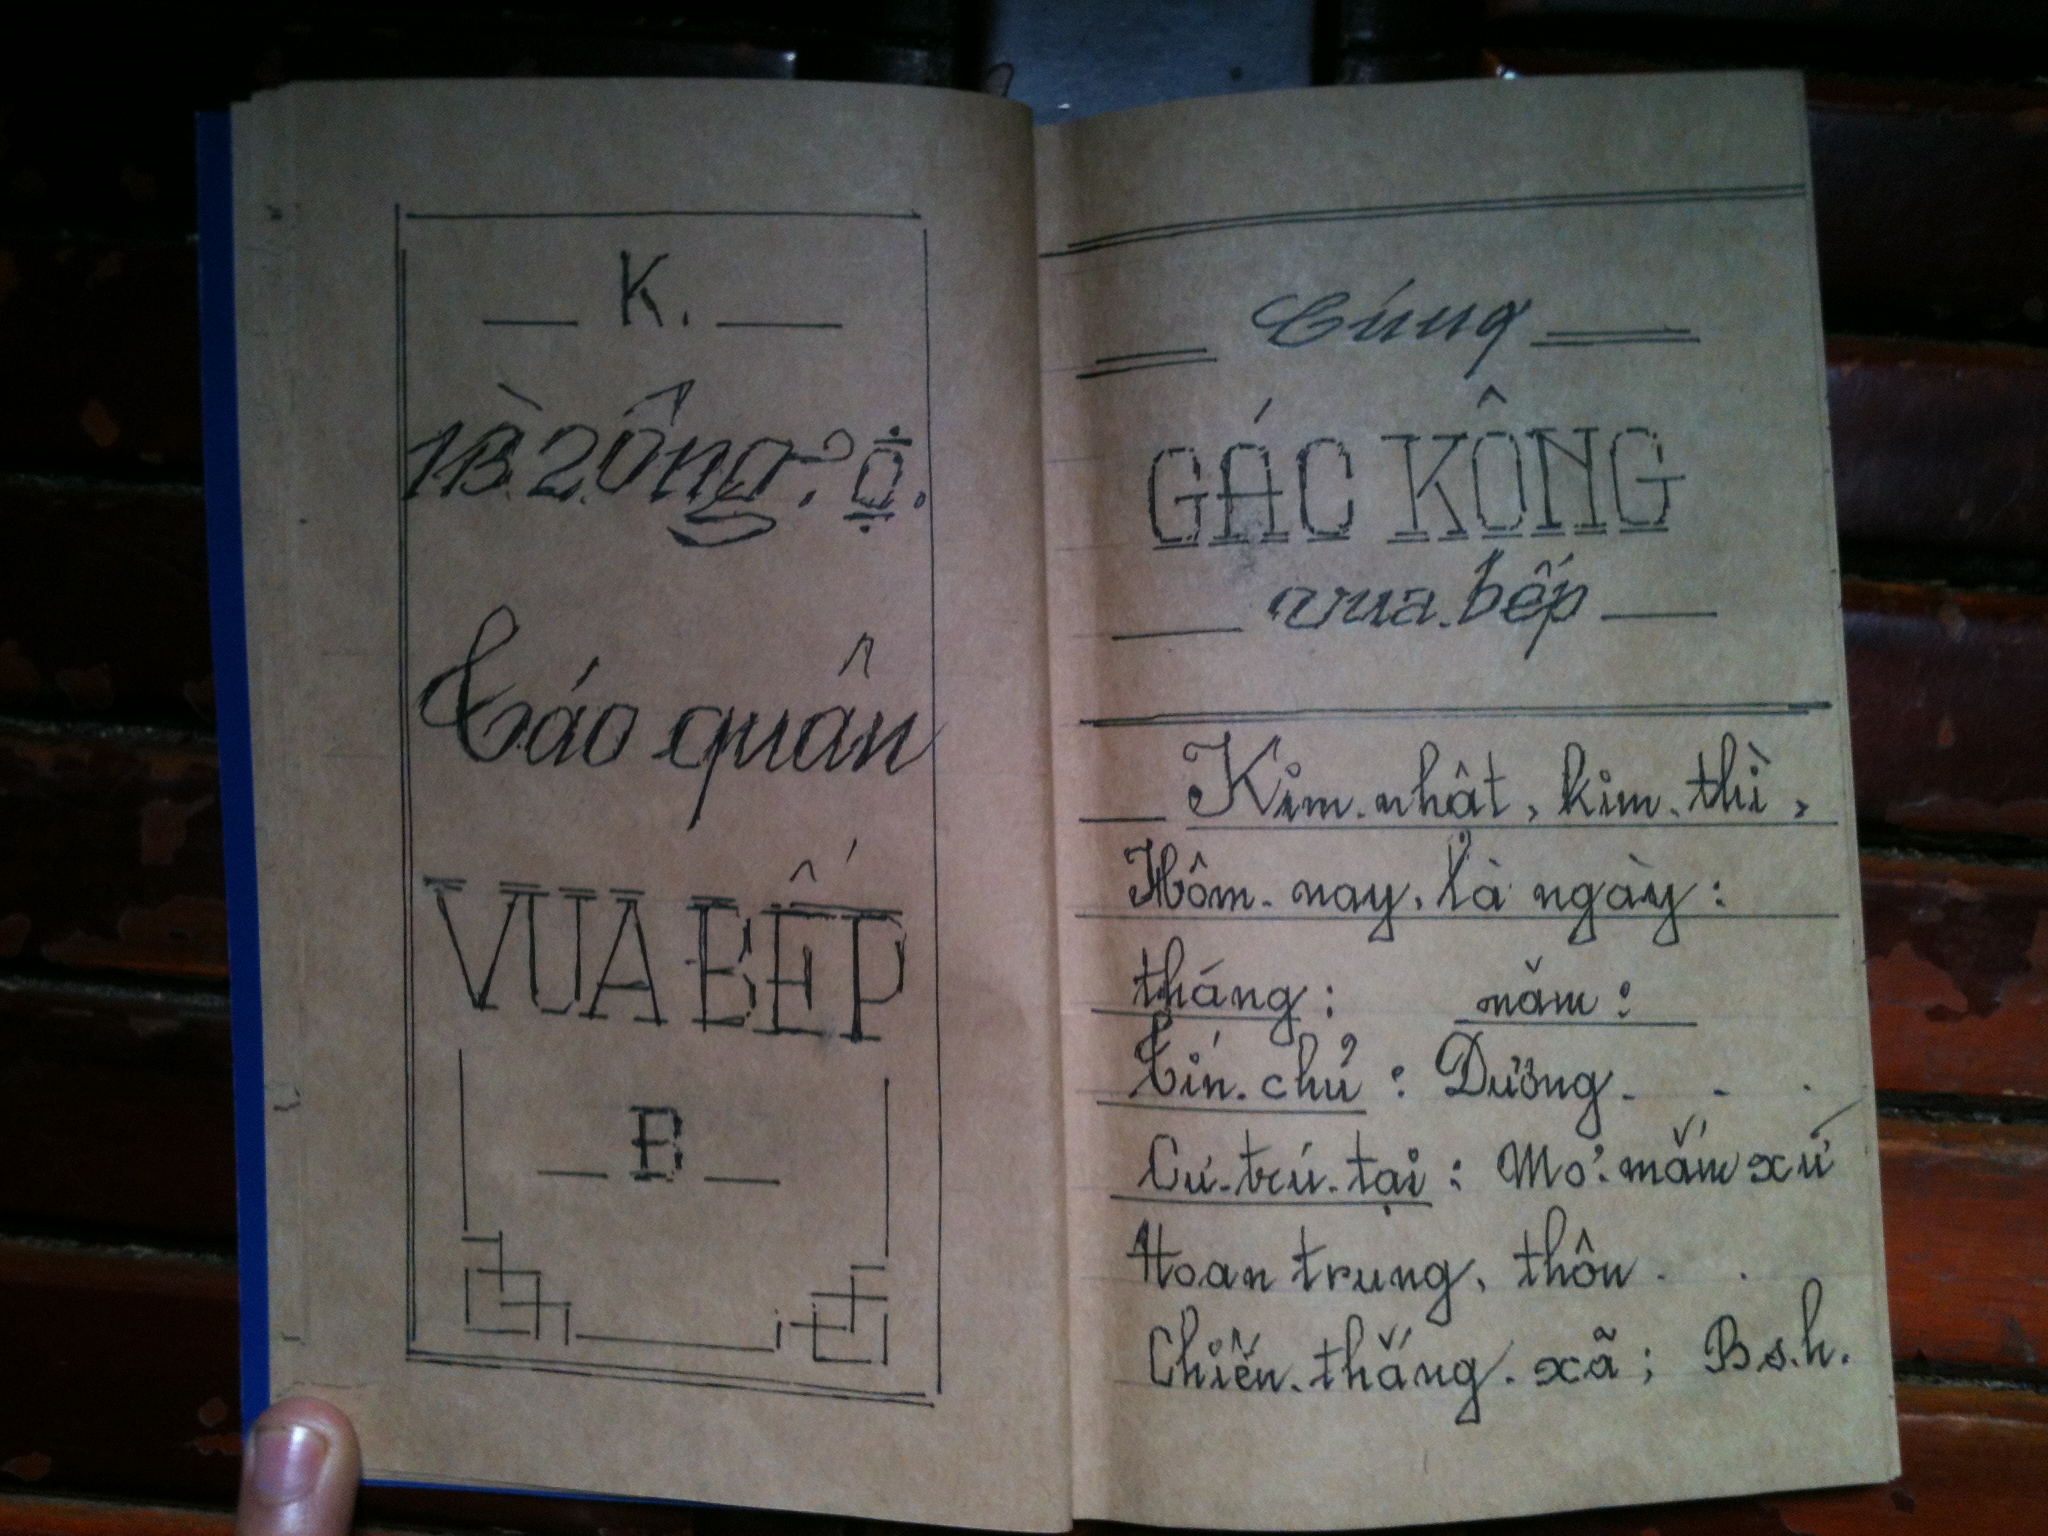 K.
1B̀.2.Ông.?
Táo quân
VUA BẾP
B
Cúng
GÁC KÔNG
vua.bếp
Kim.nhât, kim.thì,
Hôm.nay, là ngày:
tháng: năm:
Tín.chủ: Dương.
Cư.trú.tại: Mơ.mắm xứ
Hoan trung, thôn.
Chiến.thắng.xã; B s.h.